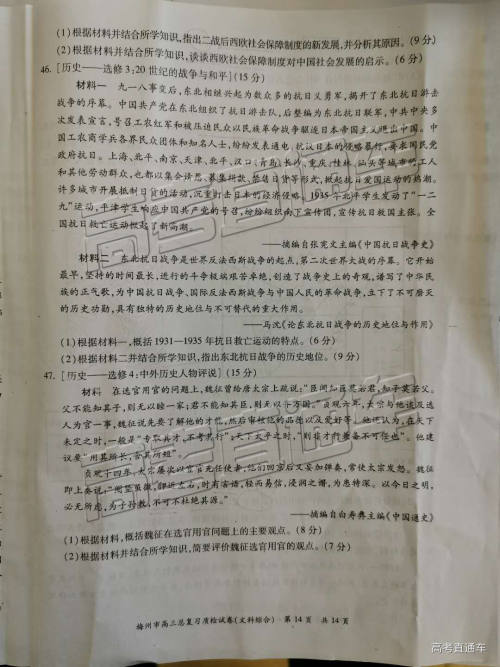 (1)根据材料并结合所学知识,指出二战后西欧社会保障制度的新发展,并分析其原因。(9分)
(2)根据材料并结合所学知识,谈谈西欧社会保障制度对中国社会发展的启示。(6分)
46. [历史——选修3:20世纪的战争与和平](15分)
材料一 九一八事变后,东北相继兴起为数众多的抗日义勇军,揭开了东北抗日游击
战争的序幕。中国共产党在东北组织了抗日游击队,后整编为东北抗日联军,中共中央多
次发表宣言,号召工农红军和被压迫民众以民族革命战争驱逐日本帝国主义出中国。中
国工农商学兵各界民众团体和知名人士,纷纷发表通电,抗议日本的侵略暴行,要求国民党
政府抗日。上海、北平、南京、天津、北平、汉口、青岛、长沙、重庆、桂林、汕头等城市的工人
和其他劳动群众,也都以集会请愿、募集捐款、禁售日货等形式,掀起抗日爱国运动的热潮。
许多城市开展抵制日货的活动,沉重打击日本的经济侵略。1935年北平学生发动了“一二
九”运动,平津学生响应中国共产党的号召,纷纷组织南下宣传团,宣传抗日救国主张。全
国抗日救亡运动掀起了新高潮。
——摘编自张宪文主编《中国抗日战争史》
材料二 东北抗日战争是世界反法西斯战争的起点,第二次世界大战的序幕。它开始
最早,坚持的时间最长,进行的斗争极端艰苦卓绝,创造了战争史上的奇观,谱写了中华民
族的正气歌,为中国抗日战争、国际反法西斯战争与中国人民的革命战争,立下了不可磨灭
的历史功勋,具有独特的历史地位与不可替代的重大作用。
——马沈《论东北抗日战争的历史地位与作用》
(1)根据材料一,概括1931—1935年抗日救亡运动的特点。(6分)
(2)根据材料二并结合所学知识,指出东北抗日战争的历史地位。(9分)
47. [历史——选修4:中外历史人物评说](15分)
材料 在选官用官的问题上,魏征曾给唐太宗上疏说:“臣闻知臣莫若君,知子莫若父。
父不能知其子,则无以睦一家;君不能知其臣,则无以齐万国。”贞观六年,太宗与他谈及选
人为官一事,魏征说先要了解他的才能,然后审核他的品德以及爱好等。他还认为,在天下
未定之时,一般是“专取其才,不考其行”;天下太平之时,“则非才行兼备不可任也”。他建
议要“用其所长,舍其所短”。
贞观十四年,太宗屡次以官员充任使者,他们回宫后又妄加弹奏,官使太宗发怒。魏征
即上条说,
必无所虑,为子孙教,不可不杜绝其源。”
——摘编自白寿彝主编《中国通史》
(1)根据材料,概括魏征在选官用官问题上的主要观点。(8分)
(2)根据材料并结合所学知识,简要评价魏征选官用官的观点。(7分)
梅州市高三总复习质检试卷(文科综合)·第14页 共14页
高考直通车
高考直通车
高考直通车